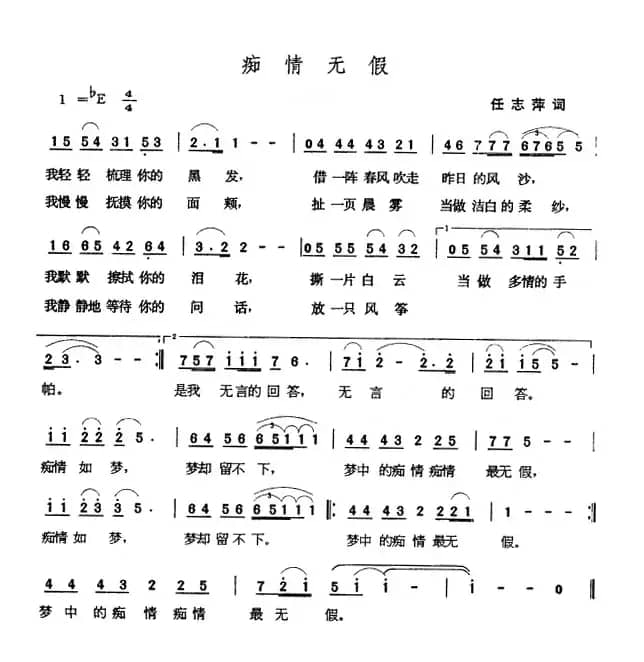 痴情无假
1=♭E 4/4
任志萍词
15 54 31 53 | 2·1 1 - - | 04 44 43 21 | 46 777 6765 5 |
我轻轻 梳理你的 黑 发, 借一阵春风吹走 昨日的风 沙,
我慢慢 抚摸你的 面 颊, 扯一页晨 雾 当做洁白的柔 纱,
16 65 42 64 | 3·2 2 - - | 05 55 54 32 | 1 05 54 311 52 |
我默默 擦拭你的 泪 花, 撕一片白云 当 做 多情的手
我静静地等待你的 问 话, 放一只风筝
23·3· - - :‖ 2 757 iii 76· | 7i2 - 2·2 | 2i i55 - |
帕。 是我 无言的回答, 无 言 的 回 答。
ii 22 25· | 64 56 3 65111 | 44 43 22 25 | 775 - - |
痴情如 梦, 梦却留不 下, 梦中的痴情痴情 最无假,
ii 23 35· | 64 56 3 65111 ‖: 44 43 2 221 | 1 - - - :‖
痴情如 梦, 梦却留不 下。 梦中的痴情最无 假。
44 43 22 25 | 7 2i | 5 i i - | i - - 0 ‖
梦中的痴 情痴情 最无 假。